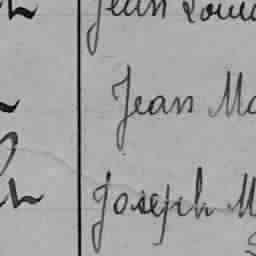 Jean Loui
Jean Ma
Joseph M